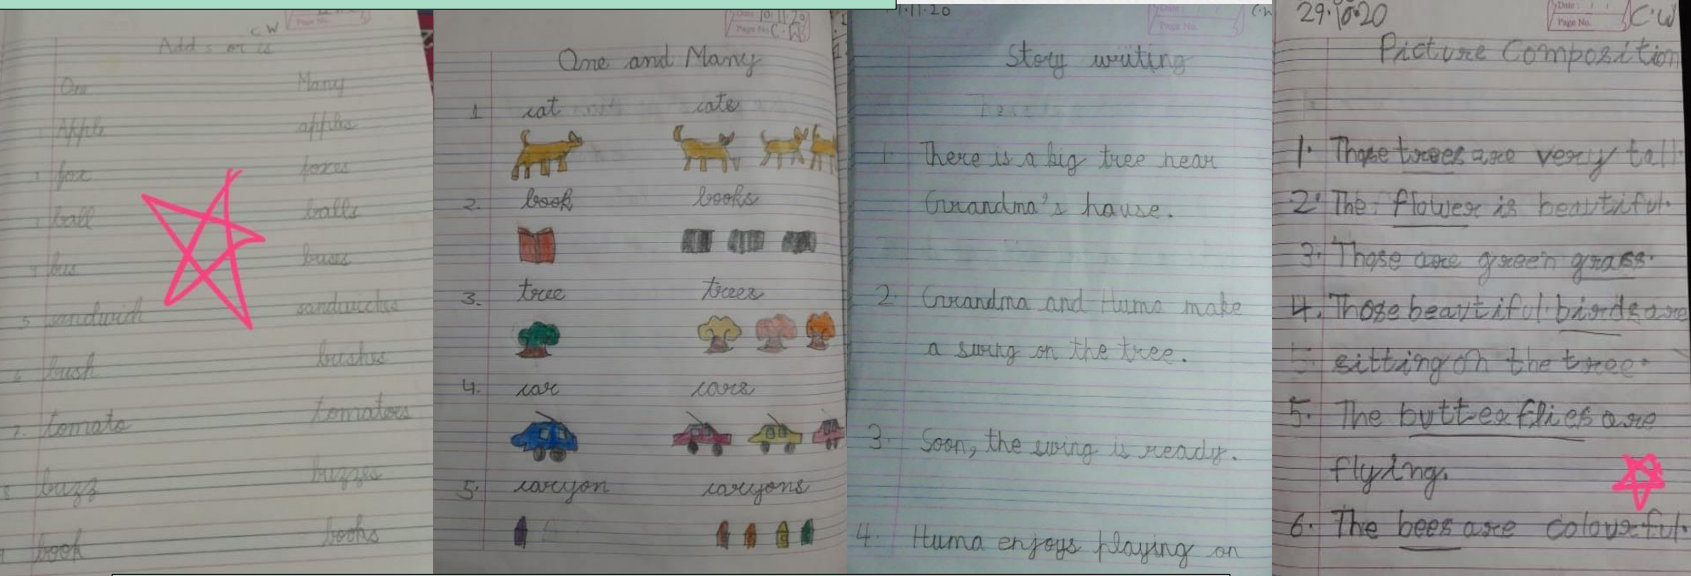 C W
Add s or es
One Many
Apple apples
fox foxes
ball balls
bus buses
5 sandwich sandwiches
6 bush bushes
7. tomato tomatoes
8 buzz buzzes
book books
Date: 10.11.20
Page No. C.W
One and Many
1 cat cats
2. book books
3. tree trees
4. car cars
5. caryon caryons
11.20
Story writing
1. There is a big tree near
Grandma's house.
2. Grandma and Huma make
a swing on the tree.
3. Soon, the swing is ready.
4. Huma enjoys playing on
29.10.20
Date:
Page No. C.W
Picture Composition
1. Those trees are very tall
2. The flower is beautiful.
3. Those are green grass.
4. Those beautiful birds are
sitting on the tree.
5. The butterflies are
flying.
6. The bees are colourful.